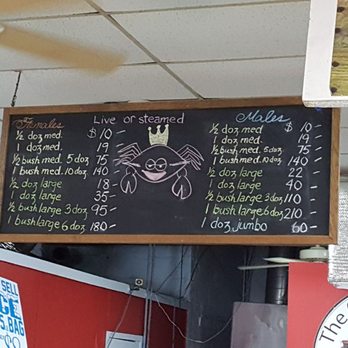 Females
Live or steamed
Males
½ doz med. $10-
1 doz med. 19-
½ bush med. 5 doz 75-
1 bush med. 10 doz 140-
½ doz large 18-
1 doz large 35-
½ bush large 3 doz 95-
1 bush large 6 doz 180-
½ doz med $10-
1 doz med 19-
½ bush med. 5 doz 75
1 bush med. 10 doz 140-
½ doz large 22
1 doz large 40-
½ bush large 3 doz 110
1 bush large 6 doz 210
1 doz jumbo 60-
SELL
CE
BAG
The